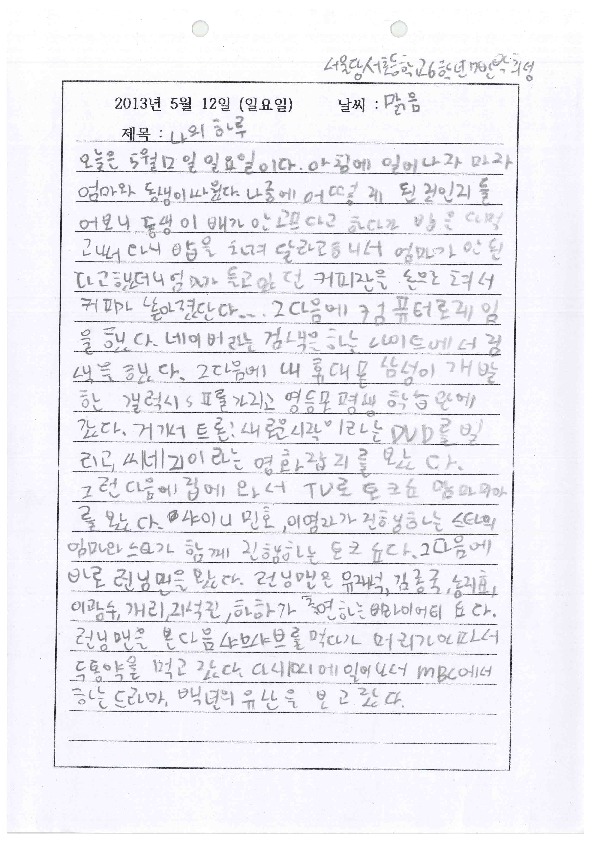 서울당서초등학교6학년7반 희성
2013년 5월 12일 (일요일) 날씨 : 맑음
제목 : 나의 하루
오늘은 5월12일 일요일이다. 아침에 일어나자 마자
엄마와 동생이 싸웠다. 나중에 어떻게 된 일인지 들
어보니 동생이 배가 안고프다고 하다가 밥을 다먹
고 다시 밥을 차려 달라고해서 엄마가 안된
다고했더니 엄마가 들고있던 커피잔을 손으로 쳐서
커피가 날아갔단다... 그다음에 컴퓨터로게임
을 했다. 네이버라는 검색을하는 사이트에서 검
색을 했다. 그다음에 내 휴대폰 삼성이 개발
한 갤럭시s 를가지고 영등포평생학습관에
갔다. 거기서 트론:새로운시작이라는 DVD를 빌
리고, 씨네21이라는 영화잡지를 보았다.
그런 다음에 집에 와서 TV로 토크쇼 맘마미아
를 보았다. 샤이니 민호, 이영자가 진행하는 스타의
엄마와 스타가 함께 진행하는 토크쇼다. 그다음에
바로 런닝맨을 보았다. 런닝맨은 유재석,김종국,송지효,
이광수,개리,지석진,하하가 출연하는 버라이어티 쇼다.
런닝맨을 본다음 샤브샤브를 먹다가 머리가아파서
두통약을 먹고 잤다. 다시 에 일어나서 MBC에서
하는드라마, 백년의 유산을 보고 잤다.